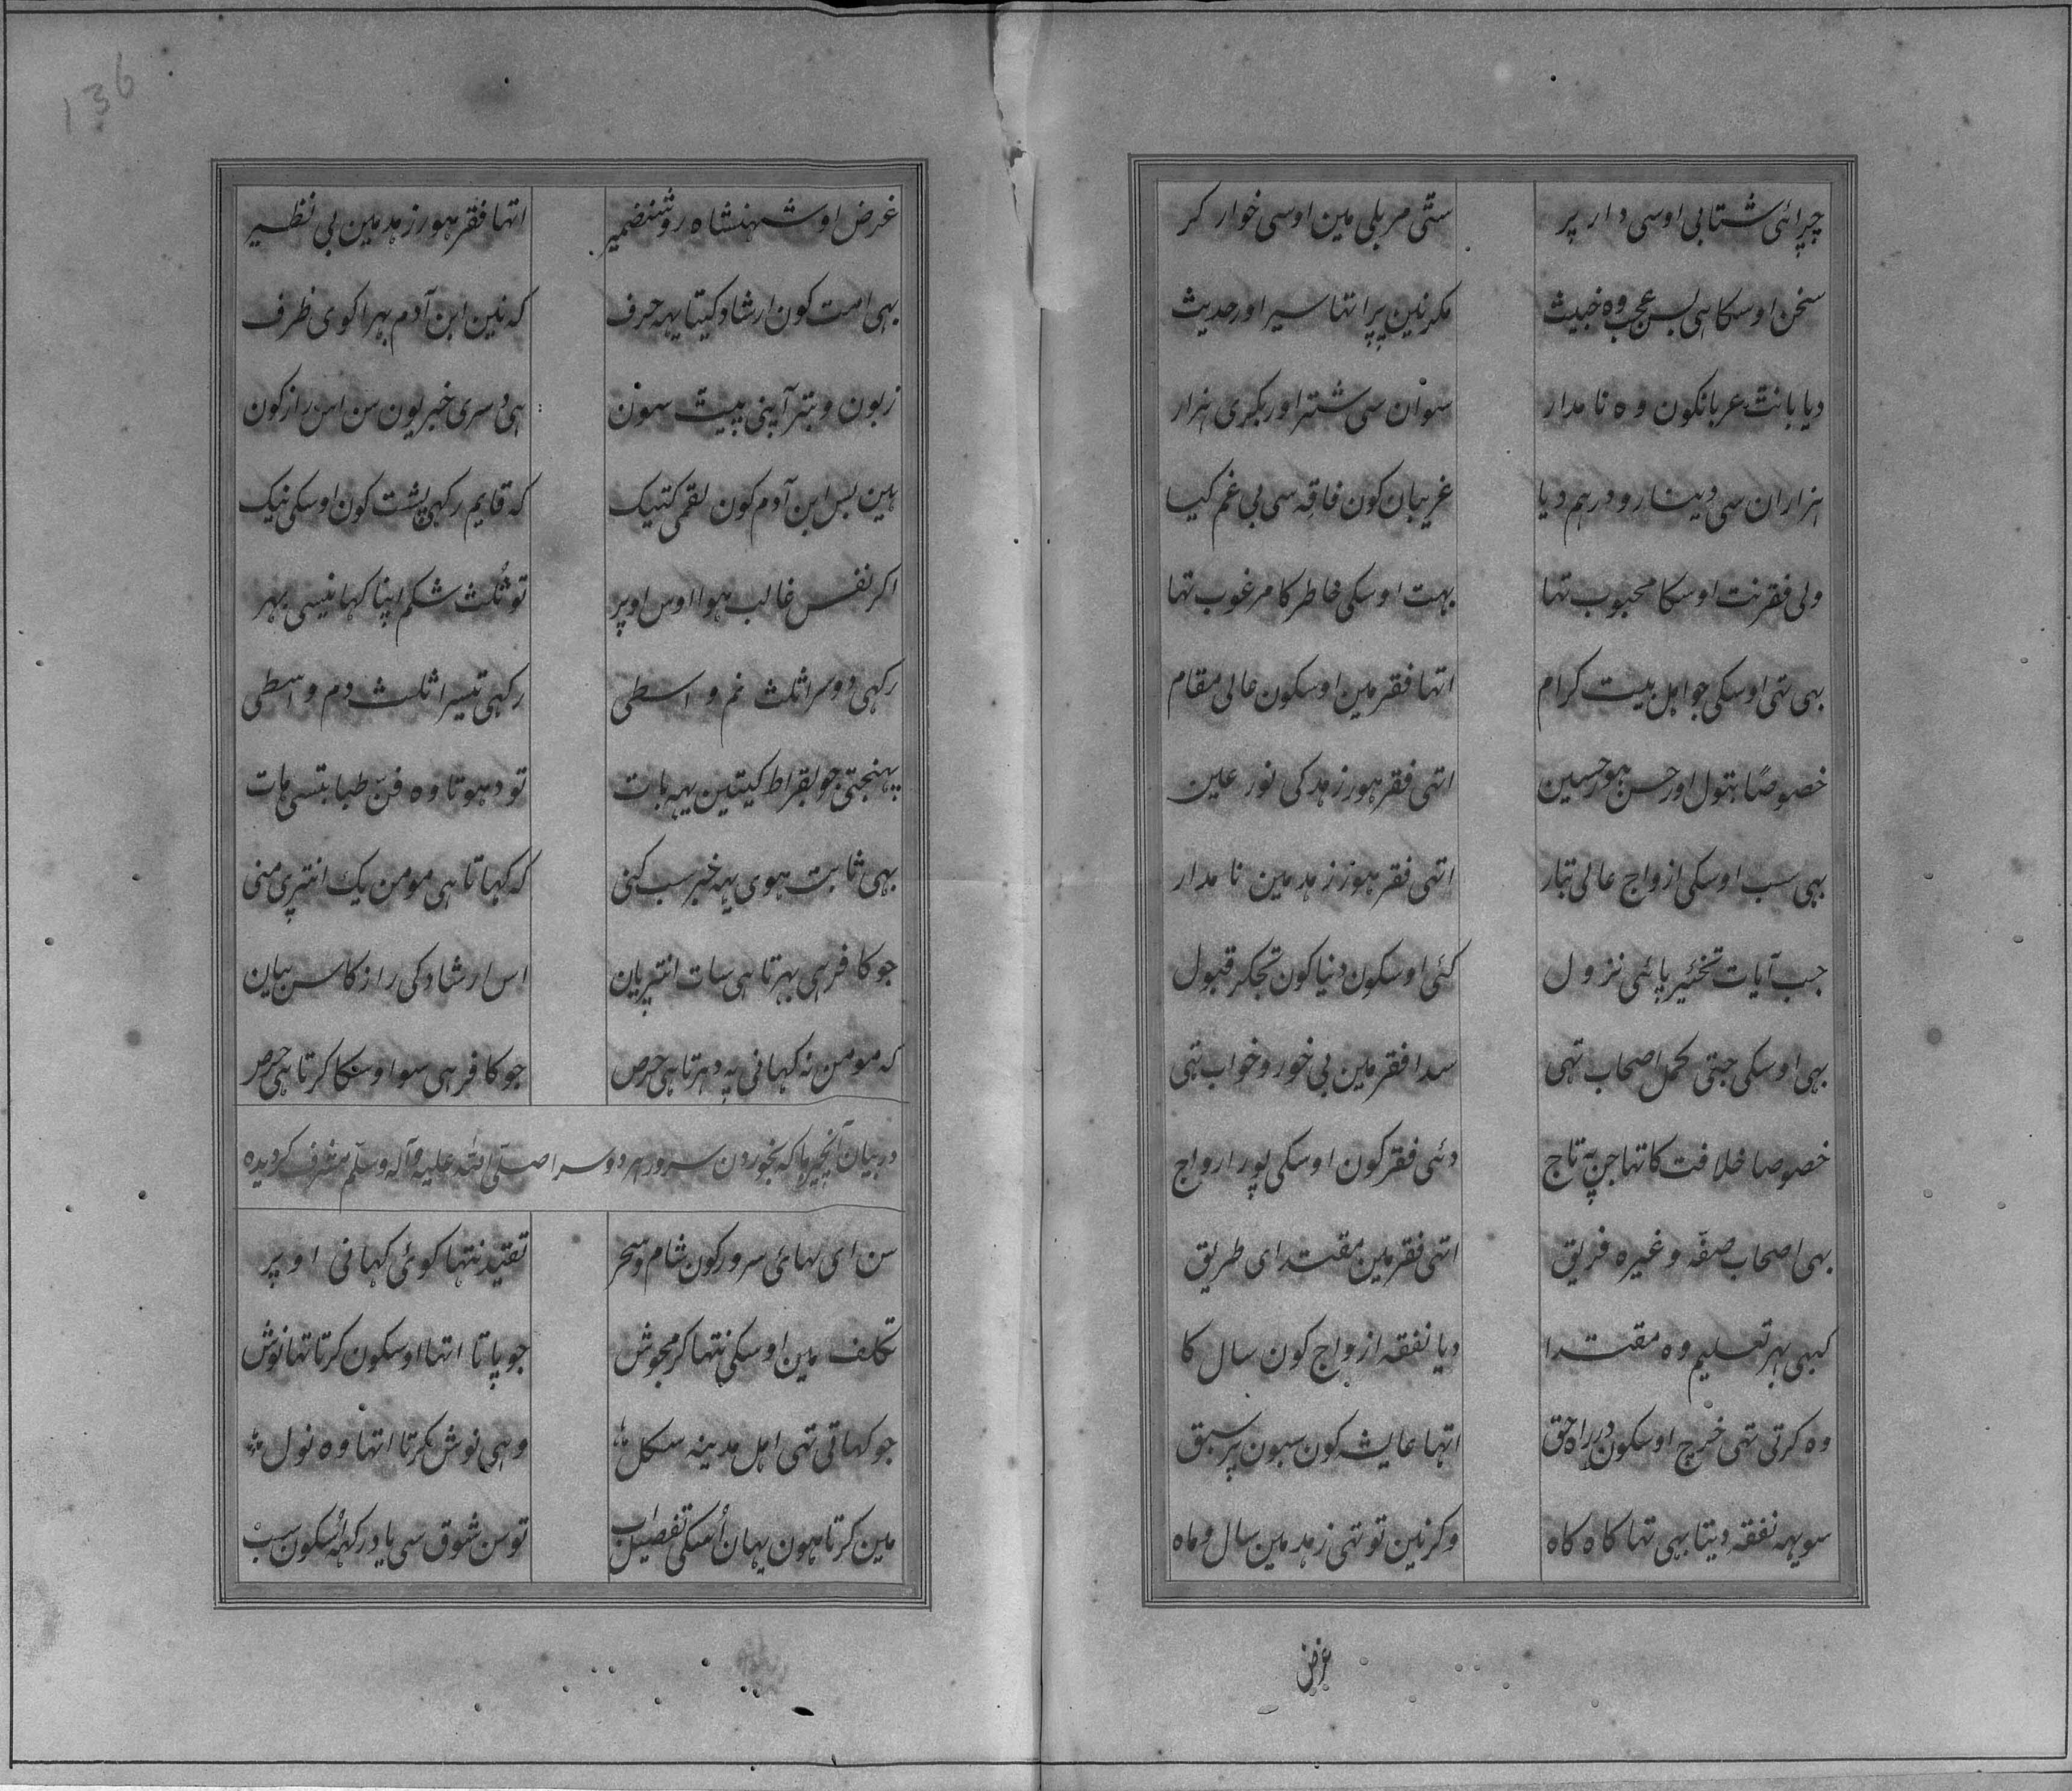 چرائی شتابی اوسی دار پر
ستی مر بلی مین اوسی خوار کر
سخن اوسکا ہی بس عجب وہ خبیث
مکر نین پرا تہا سیر اور حدیث
دیا بانٹ عربانکون وہ نامدار
سوان سی شتر اور بکری ہزار
ہزاران سی دینار و درہم دیا
غریبان کون فاقہ سی بی غم کیا
ولی فقر نت اوسکا محبوب تہا
بہت اوسکی خاطر کا مرغوب تہا
بہی تہی اوسکی جو اہل بیت کرام
اتہا فقر مین اوسکون عالی مقام
خصوصًا بتول اور حسن ہور حسین
اتہی فقر ہور زہد کی نور عین
بہی سب اوسکی ازواج عالی تبار
اتہی فقر ہور زہد مین نامدار
جب آیات تخئیر پائی نزول
کئی اوسکون دنیا کون تجکر قبول
بہی اوسکی جتی مجمل اصحاب تہی
سدا فقر مین بی خور و خواب تہی
خصوصا خلافت کا تہا جن پہ تاج
دئی فقر کون اوسکی پورا رواج
بہی اصحاب صفّہ وغیرہ فریق
اتہی فقر مین مقتدای طریق
کبہی بہر تعلیم وہ مقتدا
دیا نفقہ ازواج کون سال کا
وہ کرتی تہی خرچ اوسکون در راہ حق
اتہا عایشہ کون سبون پر سبق
سو یہہ نفقہ دیتا بہی تہا کاہ کاہ
وکر نین تو تہی زہد مین سال و ماہ
غرض
136
غرض او شہنشاہ روشنضمیر
اتہا فقر ہور زہد مین بی نظیر
بہی امت کون ارشاد کیتا یہہ حرف
کہ نین ابن آدم بہرا کوی ظرف
زبون و بتر آپنی پیٹ سون
ہی دسری خبر یون سن اس راز کون
ہین بس ابن آدم کون لقمی کتیک
کہ قایم رکہی پشت کون اوسکی نیک
اکر نفس غالب ہوا اوس اوپر
تو ثلث شکم اپنا کہانیسی بہر
رکہی دوسرا ثلث نم واسطی
رکہی تیسرا ثلث دم واسطی
پہنچتی جو بقراط کیتین یہہ بات
تو دہوتا وہ فن طبابتسی ہات
بہی ثابت ہوی یہہ خبر سب کنی
کہ کہاتا ہی مومن یک انتری منی
جو کافر ہی بہرتا ہی سات انتریان
اس ارشاد کی راز کا سن بیان
کہ مومن نہ کہانی پہ دہرتا ہی حرص
جو کافر ہی سو اوسکا کرتا ہی حرص
در بیان آنچیزہا کہ بخوردن سرور ہر دو سرا صلّی اللہ علیہ و آلہ و سلّم مشرف کردیدہ
سن ای بہائی سرور کون شام و سحر
تقیّد نتہا کوئی کہانی اوپر
تکلف مین اوسکی نتہا کرمجوش
جو پاتا اتہا اوسکون کرتا تہا نوش
جو کہاتی تہی اہل مدینہ سکل
وہی نوش کرتا اتہا وہ نول
مین کرتا ہون یہان اُسکی تفصیل اب
تو سن شوق سی یاد رکہہ اُسکون سب